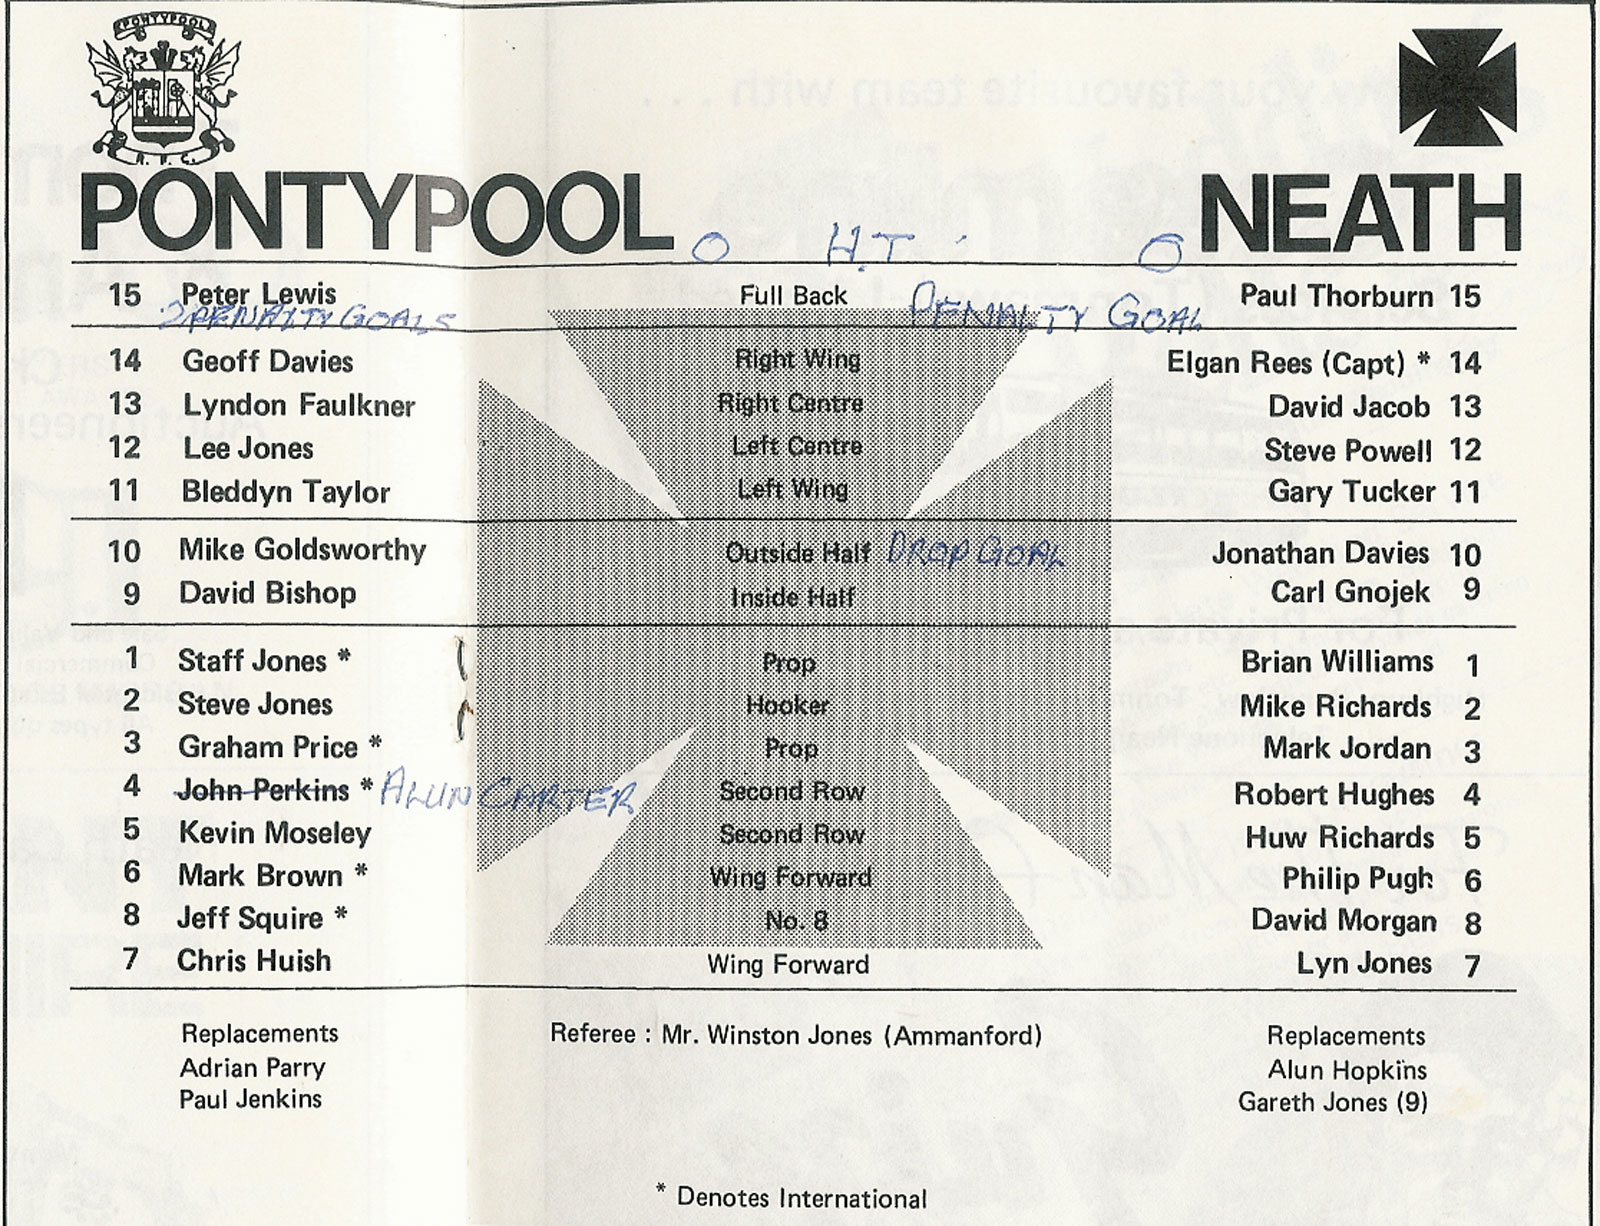 PONTYPOOL
R. F. C.
PONTYPOOL NEATH
0 H.T. 6
15 Peter Lewis Full Back Paul Thorburn 15
2 PENALTY GOALS PENALTY GOAL
14 Geoff Davies Right Wing Elgan Rees (Capt) * 14
13 Lyndon Faulkner Right Centre David Jacob 13
12 Lee Jones Left Centre Steve Powell 12
11 Bleddyn Taylor Left Wing Gary Tucker 11
10 Mike Goldsworthy Outside Half DROP GOAL Jonathan Davies 10
9 David Bishop Inside Half Carl Gnojek 9
1 Staff Jones * Prop Brian Williams 1
2 Steve Jones Hooker Mike Richards 2
3 Graham Price * Prop Mark Jordan 3
4 John Perkins * ALUN CARTER Second Row Robert Hughes 4
5 Kevin Moseley Second Row Huw Richards 5
6 Mark Brown * Wing Forward Philip Pugh 6
8 Jeff Squire * No. 8 David Morgan 8
7 Chris Huish Wing Forward Lyn Jones 7
Replacements Referee : Mr. Winston Jones (Ammanford) Replacements
Adrian Parry Alun Hopkins
Paul Jenkins Gareth Jones (9)
* Denotes International